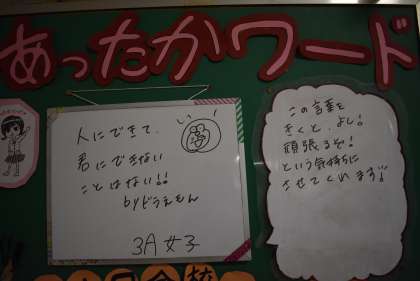 あったかワード
人にできて、
君にできない
ことはない!!
byドラえもん
3A 女子
この言葉を
きくと、よし!
頑張るぞ!
という気持ちに
させてくれます!